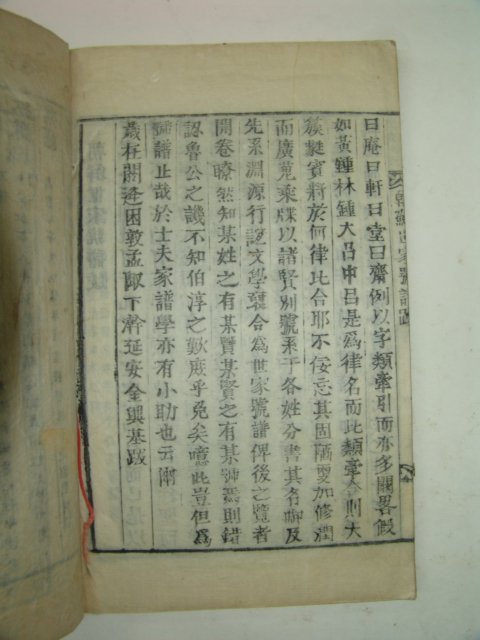 朝鮮世家號譜跋
曰庵曰軒曰堂曰齋例以字類牽引而亦多闕畧假
如黃鍾林鍾大呂中呂是爲律名而比類牽合則大
簇蕤賓將於何律比合耶不佞忘其固陋更加修潤
而廣蒐乘牒以諸賢別號系于各姓分書其名啣及
先系淵源行誼文學裒合爲世家號譜俾後之覽者
開卷瞭然知某姓之有某賢某賢之有某號焉則錯
認魯公之譏不知伯淳之歎庶乎免矣噫此豈但爲
號譜止哉於士夫家譜學亦有小助也云爾
歲在閼逢困敦孟陬下澣延安金興基跋